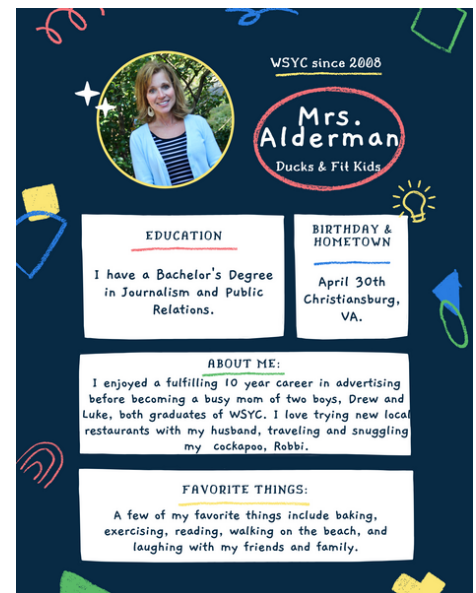 WSYC since 2008
Mrs.
Alderman
Ducks & Fit Kids
EDUCATION
I have a Bachelor's Degree
in Journalism and Public
Relations.
BIRTHDAY &
HOMETOWN
April 30th
Christiansburg,
VA.
ABOUT ME:
I enjoyed a fulfilling 10 year career in advertising
before becoming a busy mom of two boys, Drew and
Luke, both graduates of WSYC. I love trying new local
restaurants with my husband, traveling and snuggling
my cockapoo, Robbi.
FAVORITE THINGS:
A few of my favorite things include baking,
exercising, reading, walking on the beach, and
laughing with my friends and family.